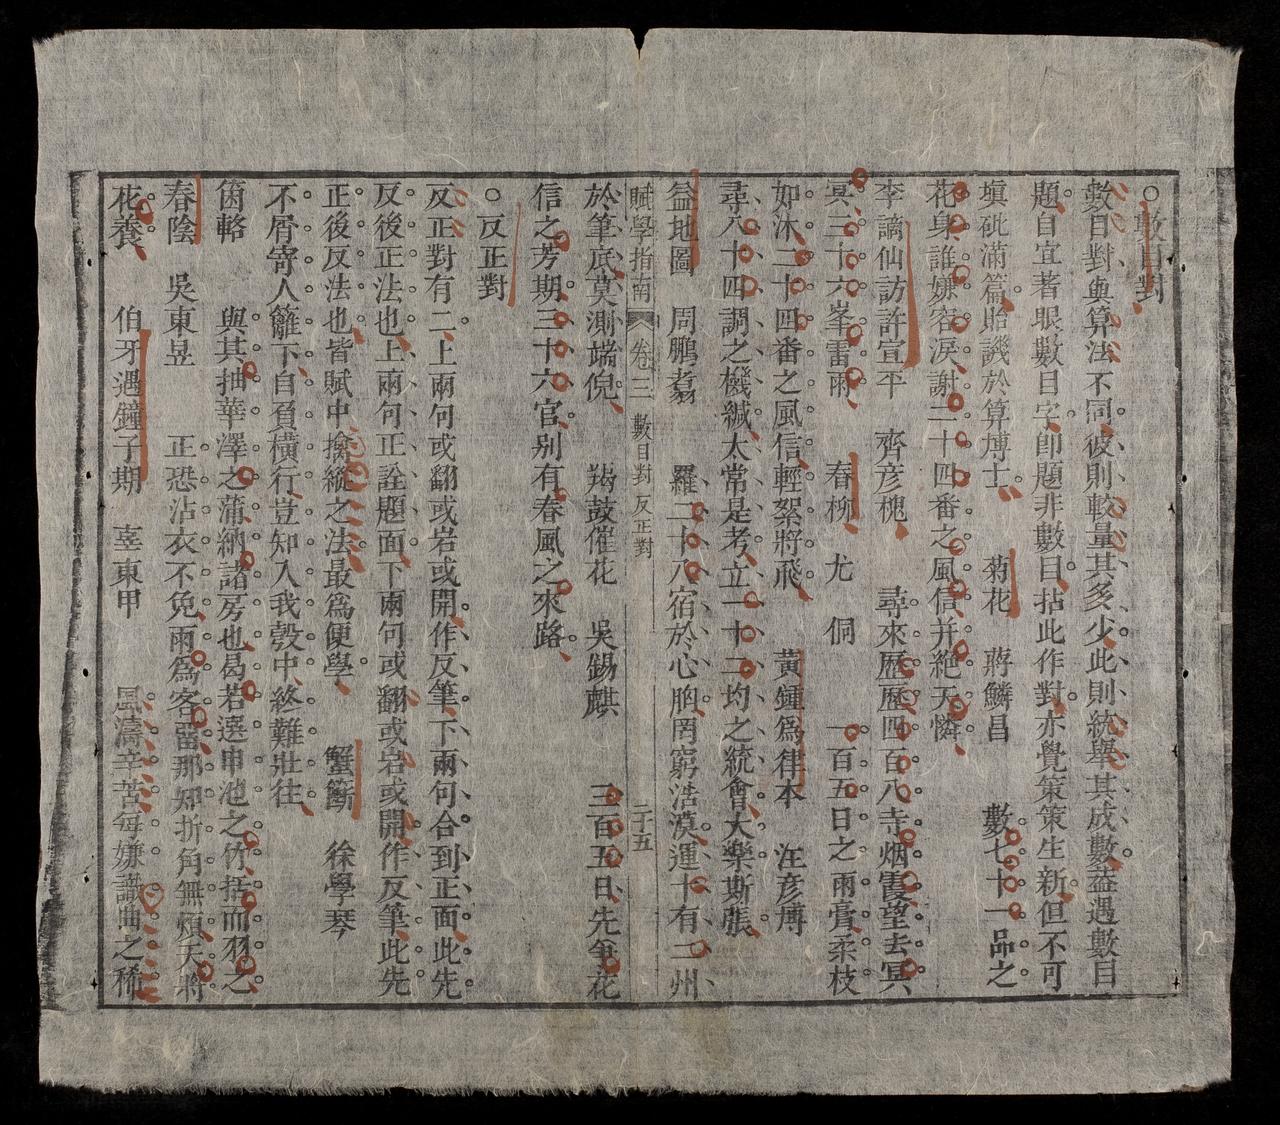 ○數目對
數目對與算法不同彼則較量其多少此則統舉其成數葢遇數目
題自宜著眼數目字卽題非數目拈此作對亦覺策策生新但不可
塡砒滿篇貽譏於算博士 菊花 蔣鱗昌 數七十一品之
花身誰嫌客淚謝二十四番之風信并絶天憐
李謫仙訪許宣平 齊彦槐 尋來歷歷四百八寺烟霞望去冥
冥三十六峯雷雨 春柳 尤侗 一百五日之雨膏柔枝
如沐二十四番之風信輕絮將飛 黃鍾爲律本 汪彦博
尋八十四調之機緘太常是考立一十二均之統會大樂斯張
益地圖 周鵬翥 羅二十八宿於心胸罔窮浩漠運十有二州
賦學指南 卷三 數目對 反正對 二十五
於筆底莫測端倪 羯鼓催花 吳錫麒 三百五日先爭花
信之芳期三十六宮别有春風之來路
○反正對
反正對有二上兩句或翻或宕或開作反筆下兩句合到正面此先
反後正法也上兩句正詮題面下兩句或翻或宕或開作反筆此先
正後反法也皆賦中擒縱之法最爲便學 蟹籪 徐學琴
不屑寄人籬下自負橫行豈知入我彀中終難壯往
箘簵 與其抽華澤之蒲納諸房也曷若選申池之竹括而羽之
春陰 吳東昱 正恐沾衣不免雨爲客畱那知折角無煩天將
花養 伯牙遇鐘子期 辜東甲 風濤辛苦每嫌識曲之稀